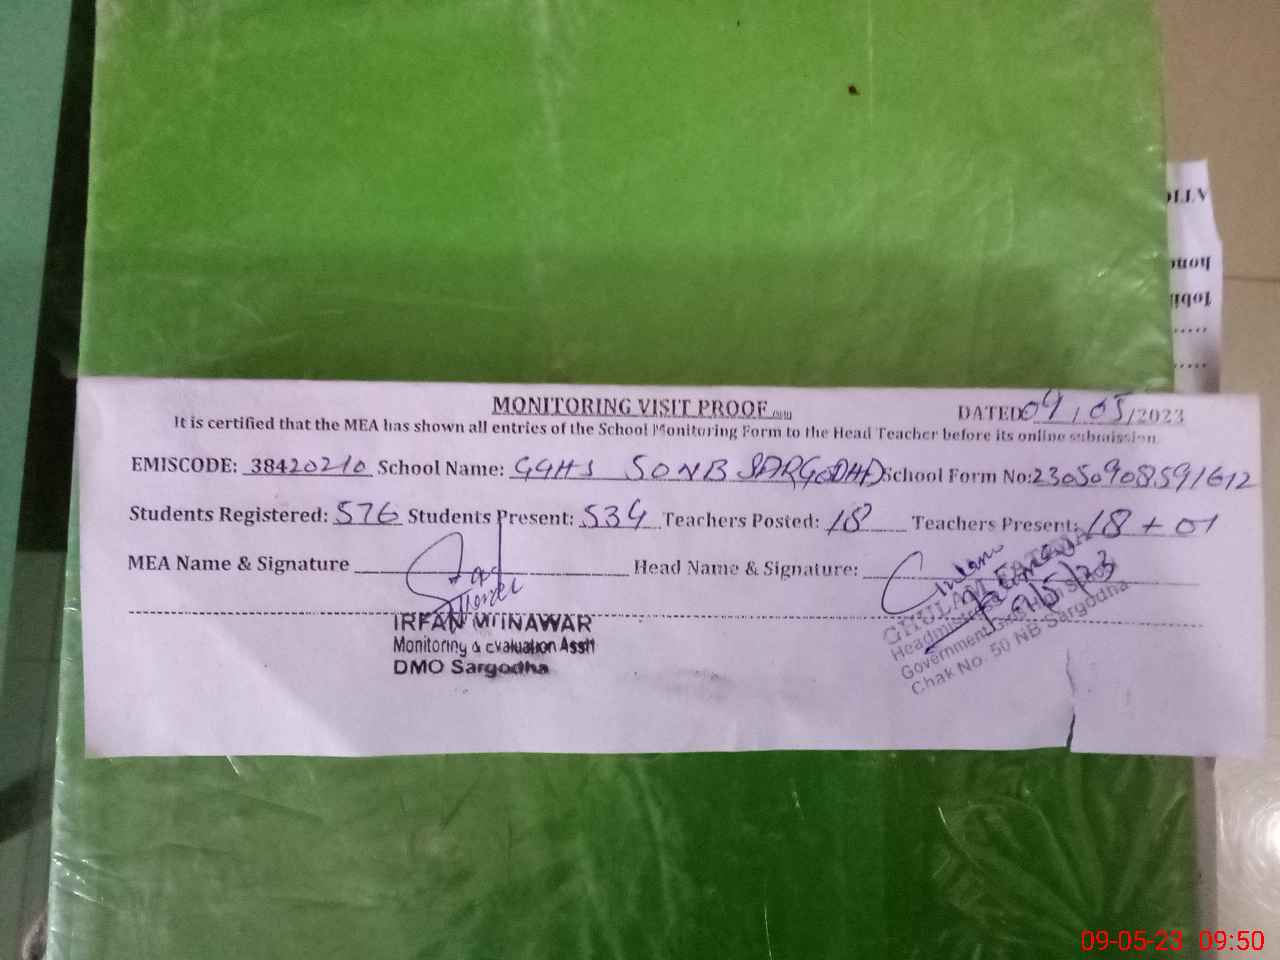 MONITORING VISIT PROOF
DATED 09/05/2023
It is certified that the MEA has shown all entries of the School Monitoring Form to the Head Teacher before its online submission.
EMISCODE: 38420210 School Name: GGHS 50NB SARGODHA School Form No: 23050908591612
Students Registered: 576 Students Present: 534 Teachers Posted: 18 Teachers Present: 18 + 01
MEA Name & Signature Head Name & Signature:
IRFAN MUNAWAR
Monitoring & evaluation Asstt
DMO Sargodha
GHULAM FATIMA
Headmistress
Government Girls High School
Chak No. 50 NB Sargodha
9/5/23
09-05-23 09:50